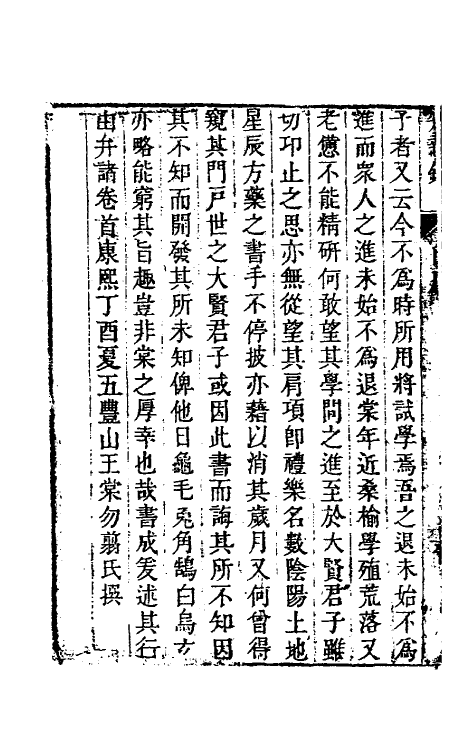 子者又云今不爲時所用將試學焉吾之退未始不爲
進而衆人之進未始不爲退棠年近桑榆學殖荒落又
老憊不能精研何敢望其學問之進至於大賢君子雖
切卬止之思亦無從望其肩項卽禮樂名數陰陽土地
星辰方藥之書手不停披亦藉以消其歲月又何曾得
窺其門戶世之大賢君子或因此書而誨其所不知因
其不知而開發其所未知俾他日龜毛兎角鵠白烏玄
亦略能窮其旨趣豈非棠之厚幸也哉書成爰述其行
由弁諸卷首康熙丁酉夏五豐山王棠勿翦氏撰